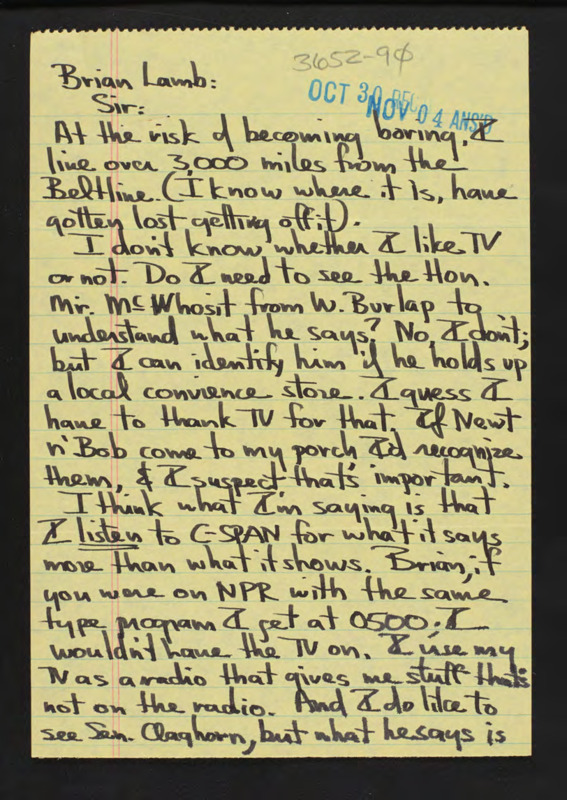 3652-90
OCT 30 REC
NOV 04 ANS'D
Brian Lamb:
Sir:
At the risk of becoming boring, I
live over 3,000 miles from the
Beltline. (I know where it is, have
gotten lost getting off it).
I don't know whether I like TV
or not. Do I need to see the Hon.
Mr. McWhosit from W. Burlap to
understand what he says? No, I don't;
but I can identify him if he holds up
a local convience store. I guess I
have to thank TV for that. If Newt
n' Bob come to my porch I'd recognize
them, & I suspect that's important.
I think what I'm saying is that
I listen to C-SPAN for what it says
more than what it shows. Brian, if
you were on NPR with the same
type program I get at 0500, I
wouldn't have the TV on. I use my
TV as a radio that gives me stuff thats
not on the radio. And I do like to
see Sen. Claghorn, but what he says is